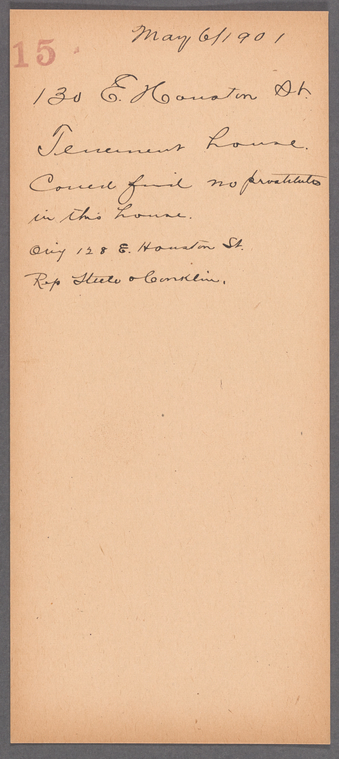 May 6/1901
15.
130 E. Houston St.
Tenement house.
Could find no prostitutes
in this house.
Orig 128 E. Houston St.
Rep Steele & Conklin.